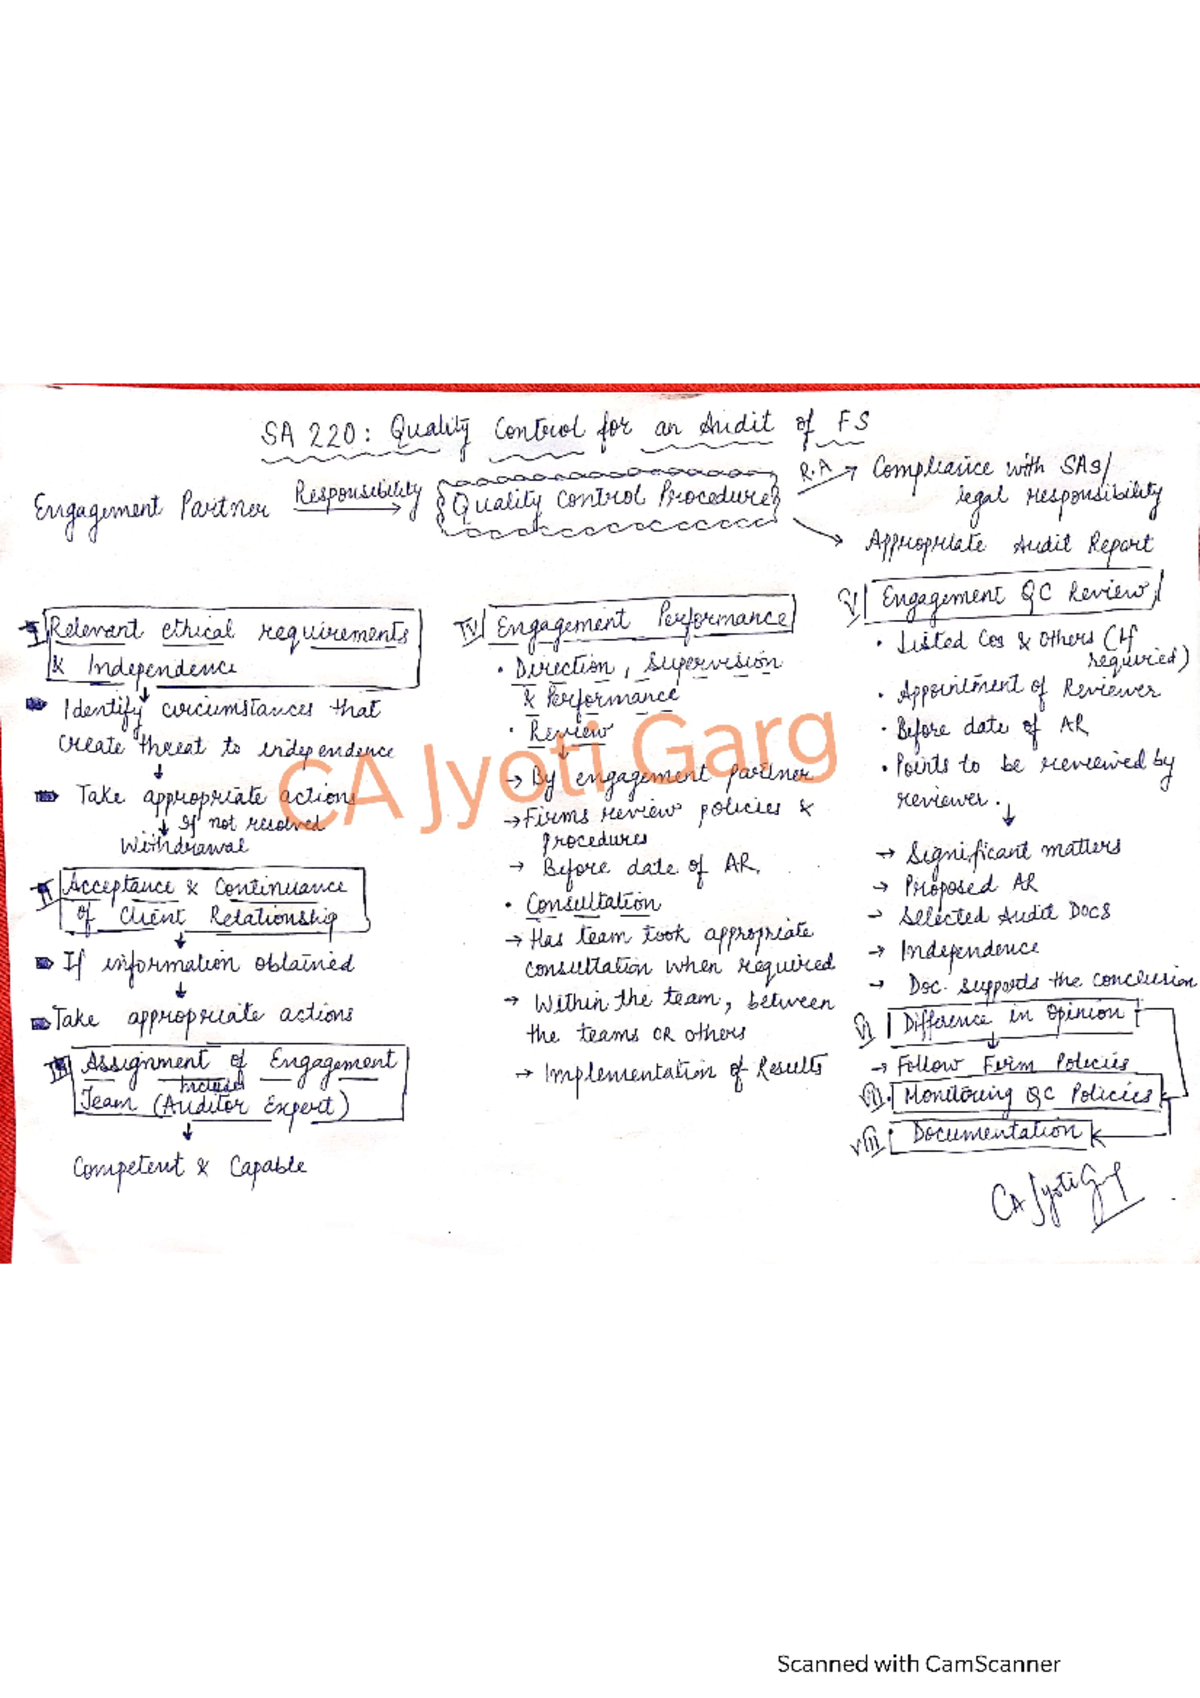 SA 220: Quality Control for an Audit of FS
Engagement Partner Responsibility Quality Control Procedure
R.A Compliance with SAs/
legal responsibility
Appropriate Audit Report
I Relevant ethical requirements
& Independence
Identify circumstances that
create threat to independence
Take appropriate actions
If not resolved
Withdrawal
II Acceptance & Continuance
of Client Relationship
If information obtained
Take appropriate actions
III Assignment of Engagement
Included
Team (Auditor Expert)
Competent & Capable
IV Engagement Performance
• Direction, Supervision
& Performance
• Review
→ By engagement partner
→ Firms review policies &
procedures
→ Before date of AR.
• Consultation
→ Has team took appropriate
consultation when required
→ Within the team, between
the teams OR others
→ Implementation of Results
V Engagement QC Review
• Listed Cos & Others (If
required)
• Appointment of Reviewer
• Before date of AR
• Points to be reviewed by
reviewer.
→ Significant matters
→ Proposed AR
→ Selected Audit DOCS
→ Independence
→ Doc. supports the conclusion
VI Difference in Opinion
→ Follow Firm Policies
VII. Monitoring QC Policies
VIII • Documentation
CA Jyoti Garg
CA Jyoti Garg
Scanned with CamScanner